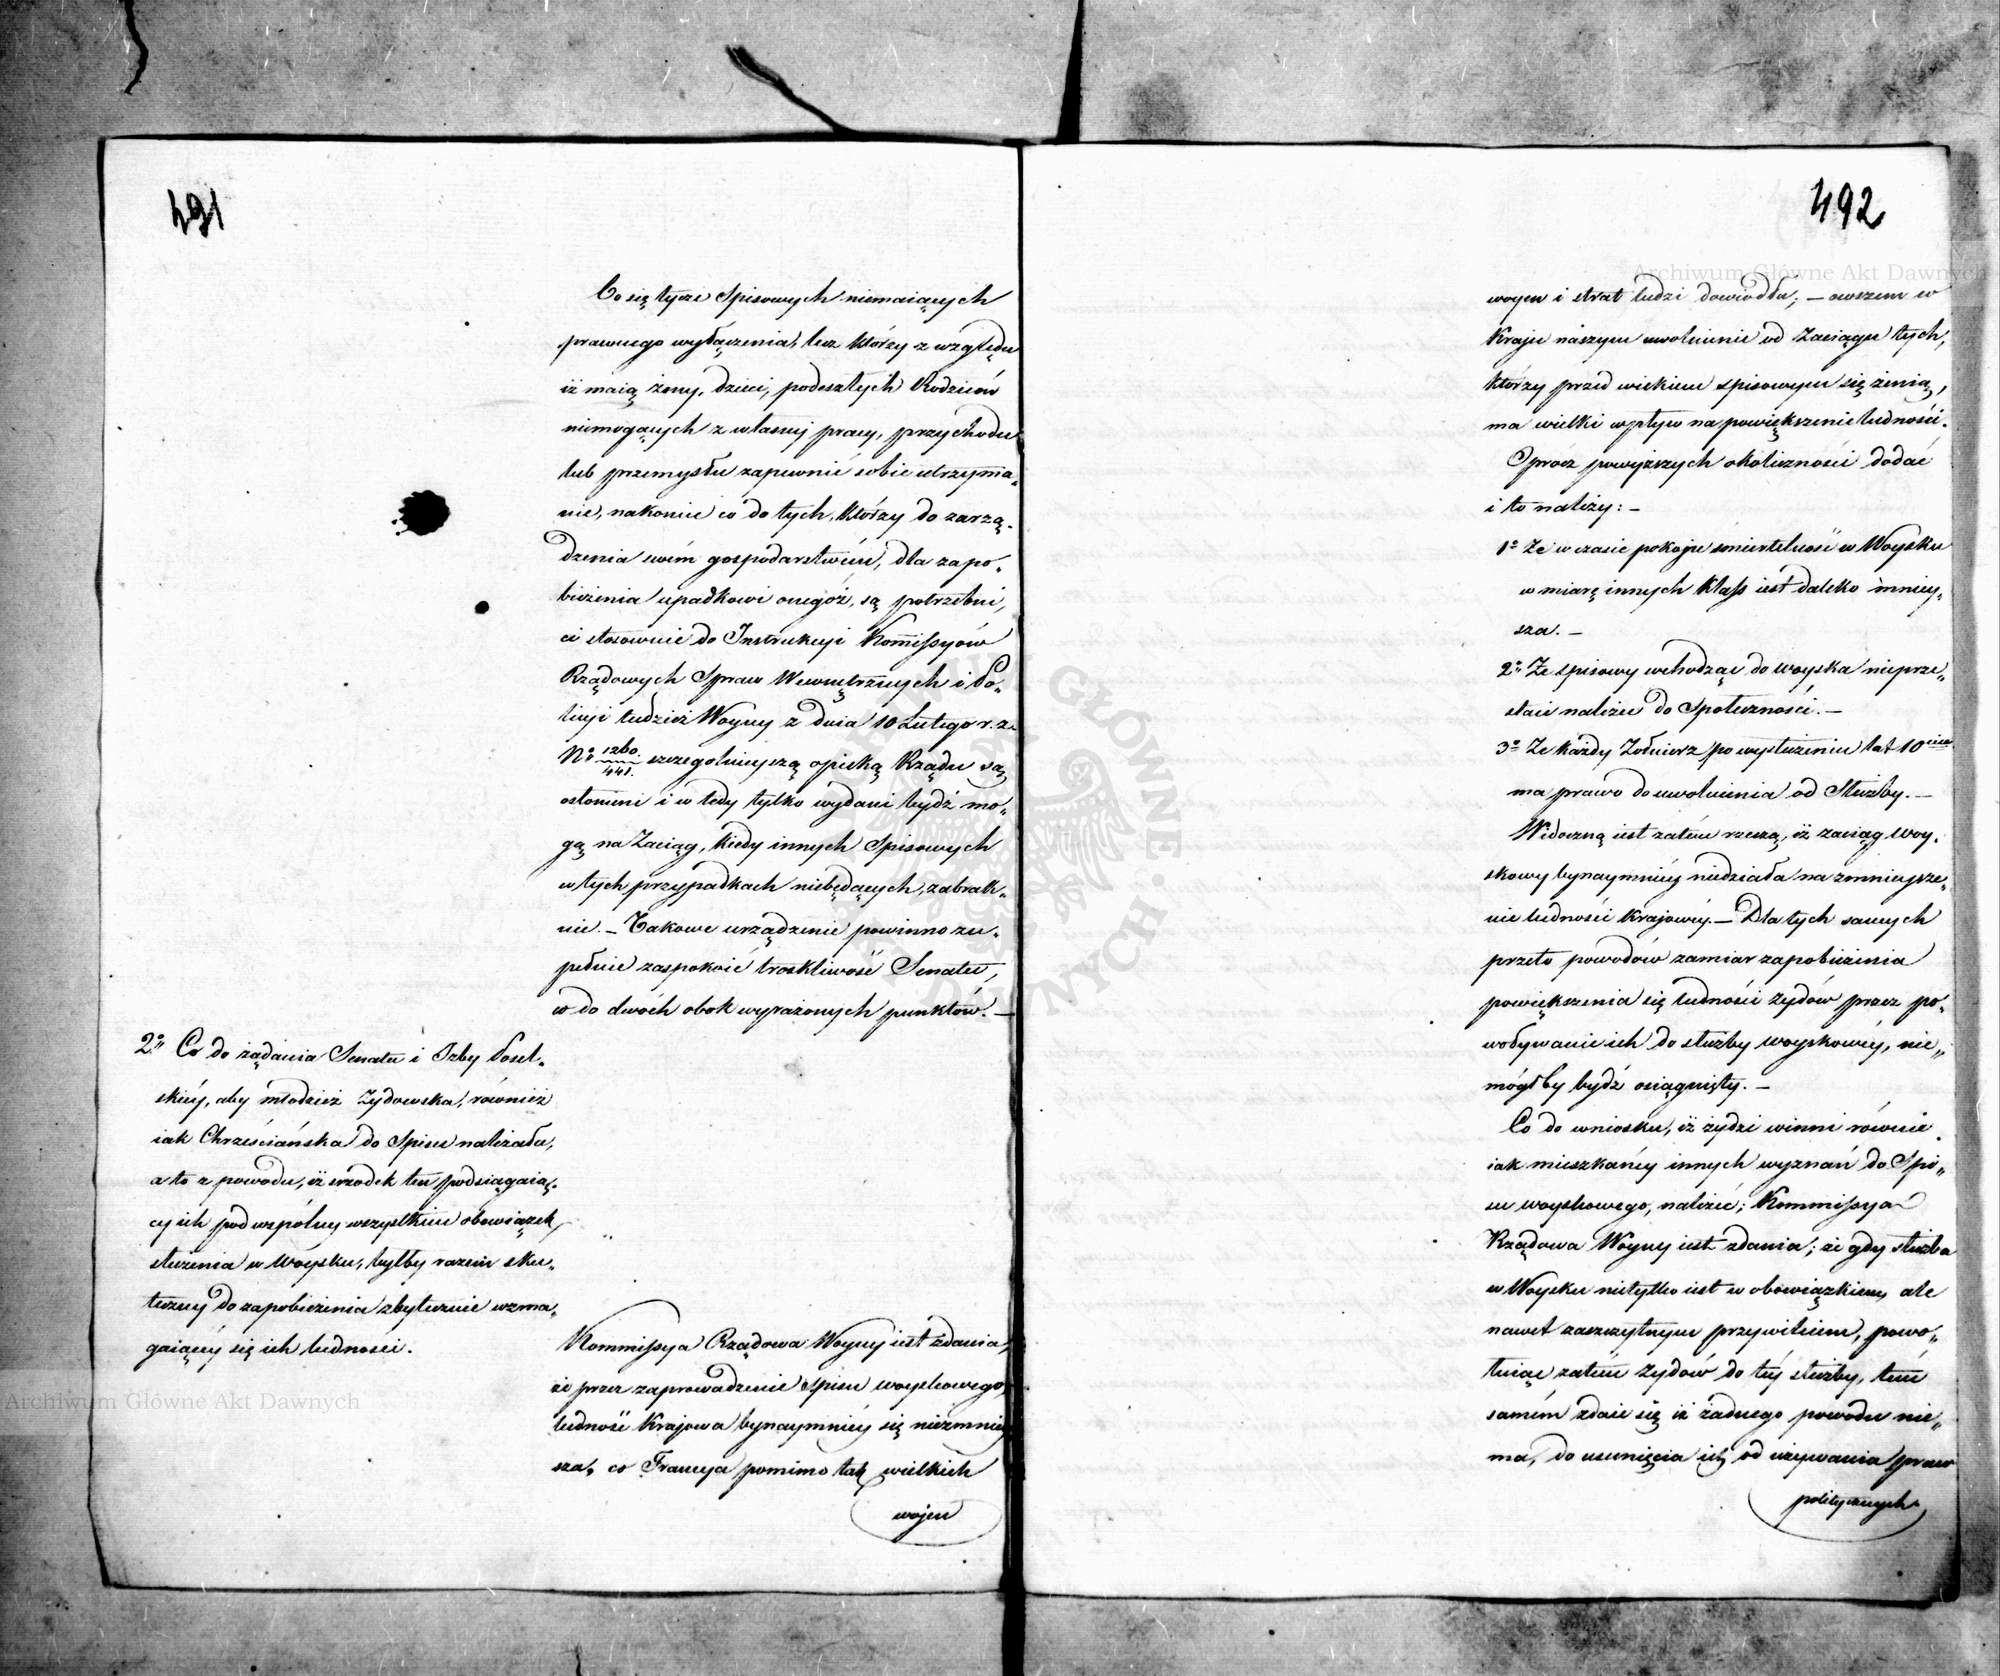 491
Co się tycze Spisowych niemaiących
prawnego wyłączenia, lecz którzy z względu
iż maią żony, dzieci, podeszłych Rodziców
niemogących z własney pracy, przychodu
lub przemysłu zapewnić sobie utrzyma„
nie, nakoniec co do tych, którzy do zarzą„
dzenia swém gospodarstwém, dla zapo„
bieżenia upadkowi onegóż, są potrzebni,
ci stosownie do Instrukcyi Kommissyów
Rządowych Spraw Wewnętrznych i Po„
licyi tudzież Woyny z dnia 10 Lutego r. z.
No 1260./441. szczególnieyszą opieką Rządu są
osłonieni i w tedy tylko wydani bydź mo„
gą na Zaciąg, kiedy innych Spisowych
w tych przypadkach niebędących, zabrak„
nie. – Takowe urządzenie powinno zu„
pełnie zaspokoić troskliwość Senatu,
co do dwóch obok wyrażonych punktów. –
2o Co do żądania Senatu i Izby Posel„
skiéy, aby młodzież Zydowska, również
iak Chrześciańska do Spisu należała,
a to z powodu, iż srzodek ten podsiągaią„
cy ich pod wspólny wszystkim obowiązek
służenia w Woysku, byłby razem sku„
teczny do zapobieżenia zbytecznie wzma„
gaiącéy się ich ludności.
Kommissya Rządowa Woyny iest zdania,
że przez zaprowadzenie Spisu woyskowego
ludność Kraiowa bynaymniéy się niezmniey
sza, co Francya pomimo tak wielkich
wojen
492
woyen i strat ludzi dowiodła; – owszem w
Kraju naszym uwolnienie od Zaciągu tych,
którzy przed wiekiem spisowym się żenią,
ma wielki wpływ na powiększenie ludności.
Oprócz powyższych okoliczności dodać
i to należy: –
1o Ze w czasie pokoju śmiertelność w Woysku
w miarę innych klass iest daleko mniey„
sza. –
2o Ze spisowy wchodząc do woyska nieprze„
staie należeć do Społeczności. –
3o Ze każdy Zołnierz po wysłużeniu lat 10ciu
ma prawo do uwolnienia od Służby. –
Widoczną iest zatém rzeczą, iż zaciąg woy„
skowy bynaymniéy niedziała na zmnieysze„
nie ludności krajowéy. – Dla tych samych
przeto powodów zamiar zapobieżenia
powiększenia się ludności żydów przez po„
woływanie ich do służby woyskowéy, nie„
mógłby bydź osiągnięty. –
Co do wniosku, iż żydzi winni równie
iak mieszkańcy innych wyznań do Spi„
su woyskowego, należeć; Kommissya
Rządowa Woyny iest zdania; że gdy służba
w Woysku nietylko iest w obowiązkiem, ale
nawet zaszczytnym przywileiem, powo„
łuiąc zatém Zydów do téy służby, tém
samém zdaie się iż żadnego powodu nie„
ma, do usunięcia ich od używania praw
politycznych
Archiwum Główne Akt Dawnych
Archiwum Główne Akt Dawnych